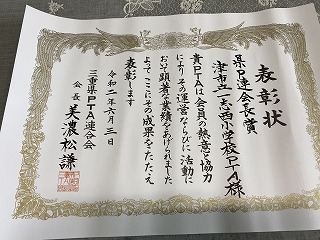 表彰状
県P連会長賞
津市立一志西小学校PTA様
貴PTAは会員の熱意と協力
によりその運営ならびに活動に
おいて顕著な業績をあげられました
よってここにその成果をたたえ
表彰します
令和二年六月三日
三重県PTA連合会
会長 美濃松謙